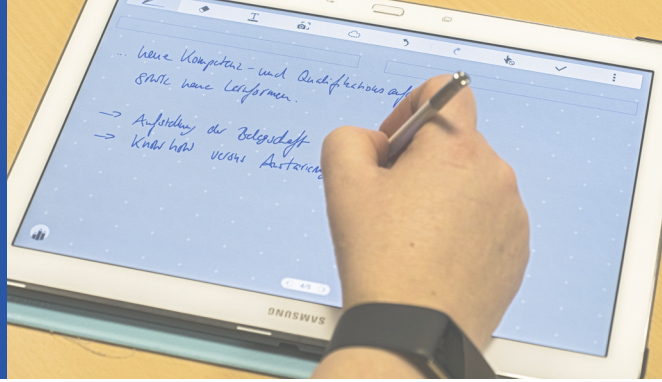 ... neue Kompetenz- und Qualifikationsauf
sowie neue Lernformen.
→ Aufstellung der Belegschaft
→ Know how versus Austarieren
SAMSUNG